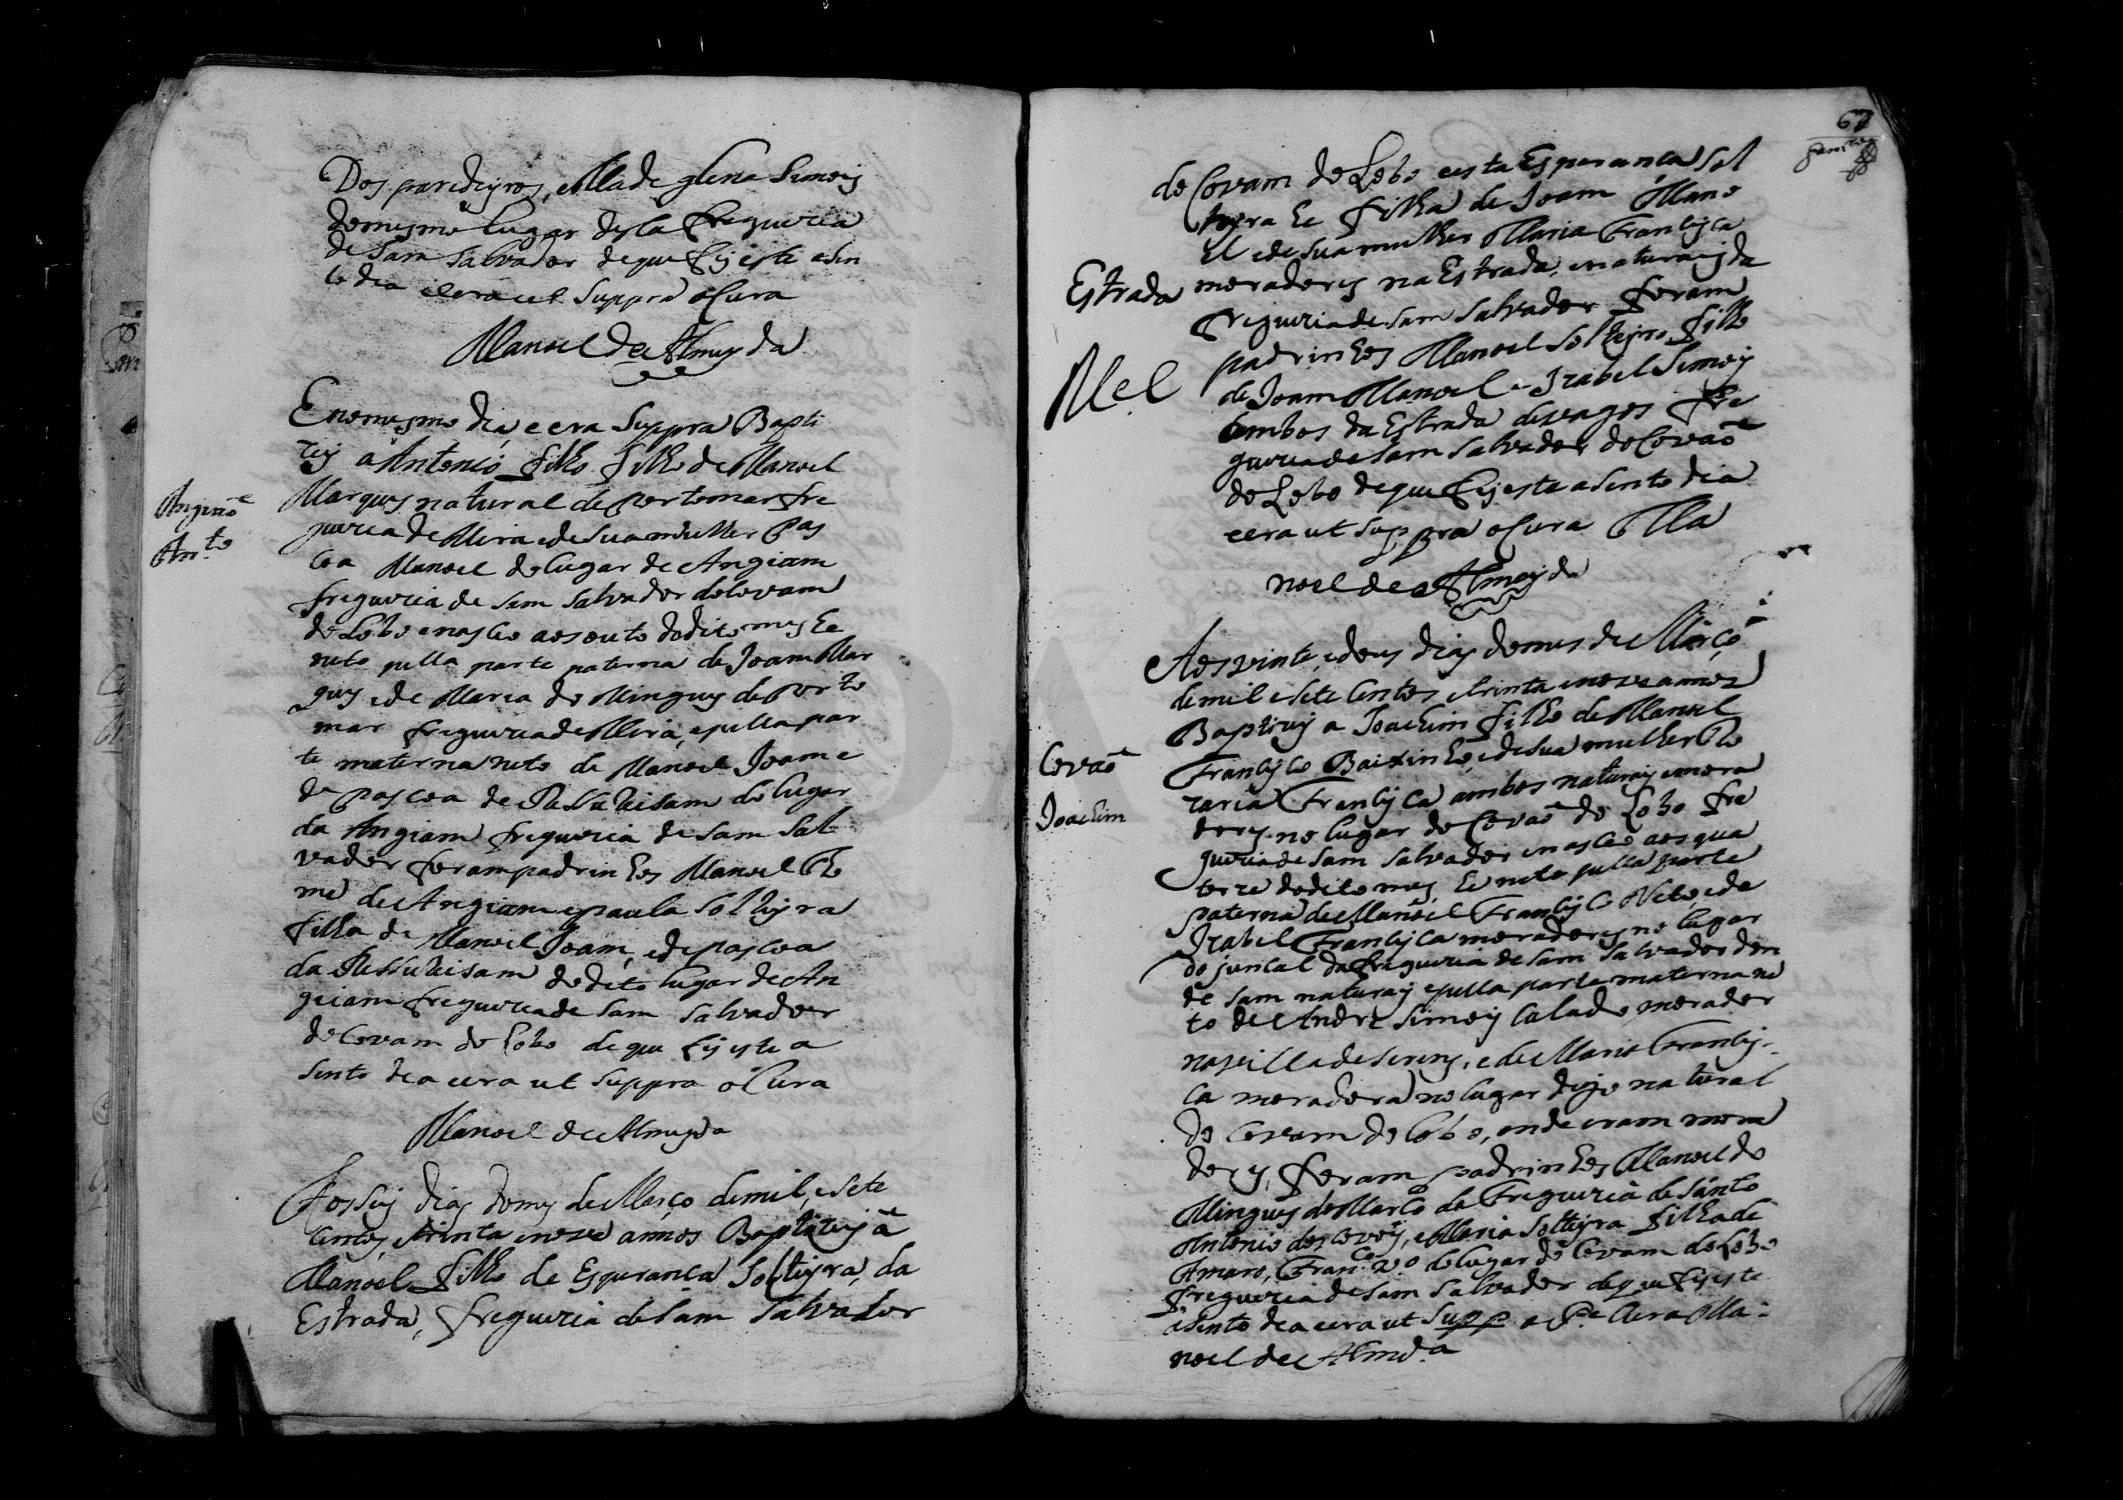 Dos paredeyros, e Madeglena Simois
do mesmo lugar desta freguezia
de Sam Salvador de que fis este asen
to dia e era ut suppra o Cura
Manoel de Almeyda
Angiaõ
Ant.to
E no mesmo dia e era suppra Bapti
zey a Antonio filho filho de Manoel
Marques natural de portomar fre
guezia de Mira e de sua mulher Pas
coa Manoel do lugar de Angiam
freguezia de Sam Salvador do Covam
do Lobo e nasceo aos outo do dito mes he
neto pella parte paterna de Joam Mar
ques e de Maria do Mingues de Porto
mar freguezia de Mira, e pella par
te materna neto de Manoel Joam e
de Pascoa da Ressureisam do lugar
da Angiam freguezia de Sam Sal
vador foram padrinhos Manoel Tho
me de Angiam e paula Solteyra
filha de Manoel Joam, e de pascoa
da Ressureisam do dito lugar de An
giam freguezia de Sam Salvador
do Covam do Lobo de que fis este a
sento dia e era ut suppra o Cura
Manoel de Almeyda
Aos seis dias do mes de Março de mil, e sete
centos, e trinta e nove annos Baptizey a
Manoel filho de Esperança Solteyra, da
Estrada, freguezia de Sam Salvador
67
do Covam do Lobo e esta Esperança Sol
teyra he filha de Joam Mano
el e de sua mulher Maria Francisca
Estrada
moradores na Estrada, e naturais da
freguezia de Sam Salvador foram
Mel
padrinhos Manoel Solteyro filho
de Joam Manoel e Izabel Simois
ambos da Estrada de vagos fre
guezia de Sam Salvador do Covaõ
do Lobo de que fis este asento dia
e era ut suppra o Cura Ma
noel de Almeyda
Aos vinte, e dous dias do mes de Março
de mil e sete centos e trinta e nove annos
Baptizey a Joachim filho de Manoel
Covaõ
Francisco Baixinho, e de sua mulher Ro
Joachim
zaria Francisca ambos naturais e mora
dores no lugar do Covaõ do Lobo fre
guezia de Sam Salvador e nasceo aos qua
torze do dito mes, he neto pella parte
paterna de Manoel Francisco Neto, e de
Izabel Francisca moradores no lugar
do juncal da freguezia de Sam Salvador don
de sam naturais e pella parte materna ne
to de Andre Simois Calado morador
na villa de Serem, e de Maria Francis-
ca moradora no lugar digo natural
do Covam do Lobo, onde eram mora
dores, foram padrinhos Manoel do
Mingues do Marco da freguezia de Santo
Antonio dos covois, e Maria Solteyra filha de
Amaro, Fran.co do lugar do Covam do Lobo
freguezia de Sam Salvador de que fis este
asento dia e era ut supp o P.e Cura Ma=
noel de Almd.a